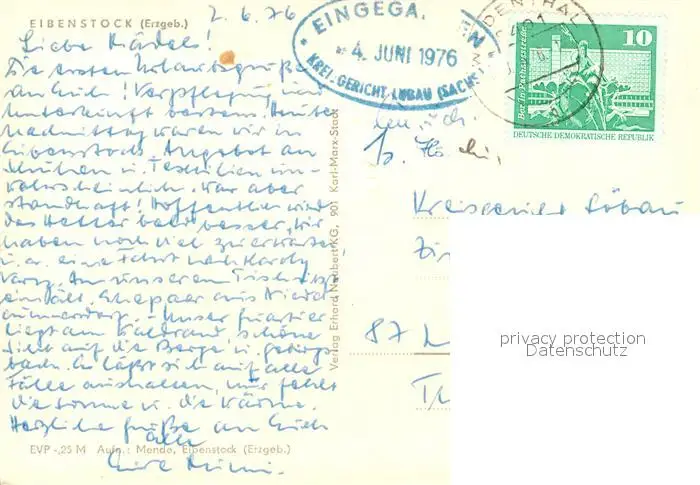 EIBENSTOCK (Erzgeb.)
2.6.76
Liebe Mädels!
Die ersten Urlaubsgrüße
an Euch! Verpflegung und
Unterkunft bestens. Heute
Nachmittag waren wir in
Eibenstock. Angebot an
Schuhen u. Textilien un-
wahrscheinlich. War aber
standhaft! Hoffentlich wird
das Wetter bald besser, wir
haben noch viel zu erwarten
u.a. eine Fahrt nach Karlovy
Vary. An unserem Tisch ist
ein ält. Ehepaar aus
Unser Quartier
liegt am Waldrand, schöne
Sicht auf die Berge u. Gebirgs
bach. Es läßt sich auf alle
Fälle aushalten, nur fehlt
die Sonne u. die Wärme.
Herzliche Grüße an Euch
alle
Eure
EVP -,25 M Aufn.: Mende, Eibenstock (Erzgeb.)
Verlag Erhard Neubert KG, 901 Karl-Marx-Stadt
EINGEGA
- 4. JUNI 1976
KREISGERICHT LÖBAU (SACHS
10
Berlin Rathausstraße
DEUTSCHE DEMOKRATISCHE REPUBLIK
Kreisgericht Löbau
87 L
privacy protection
Datenschutz